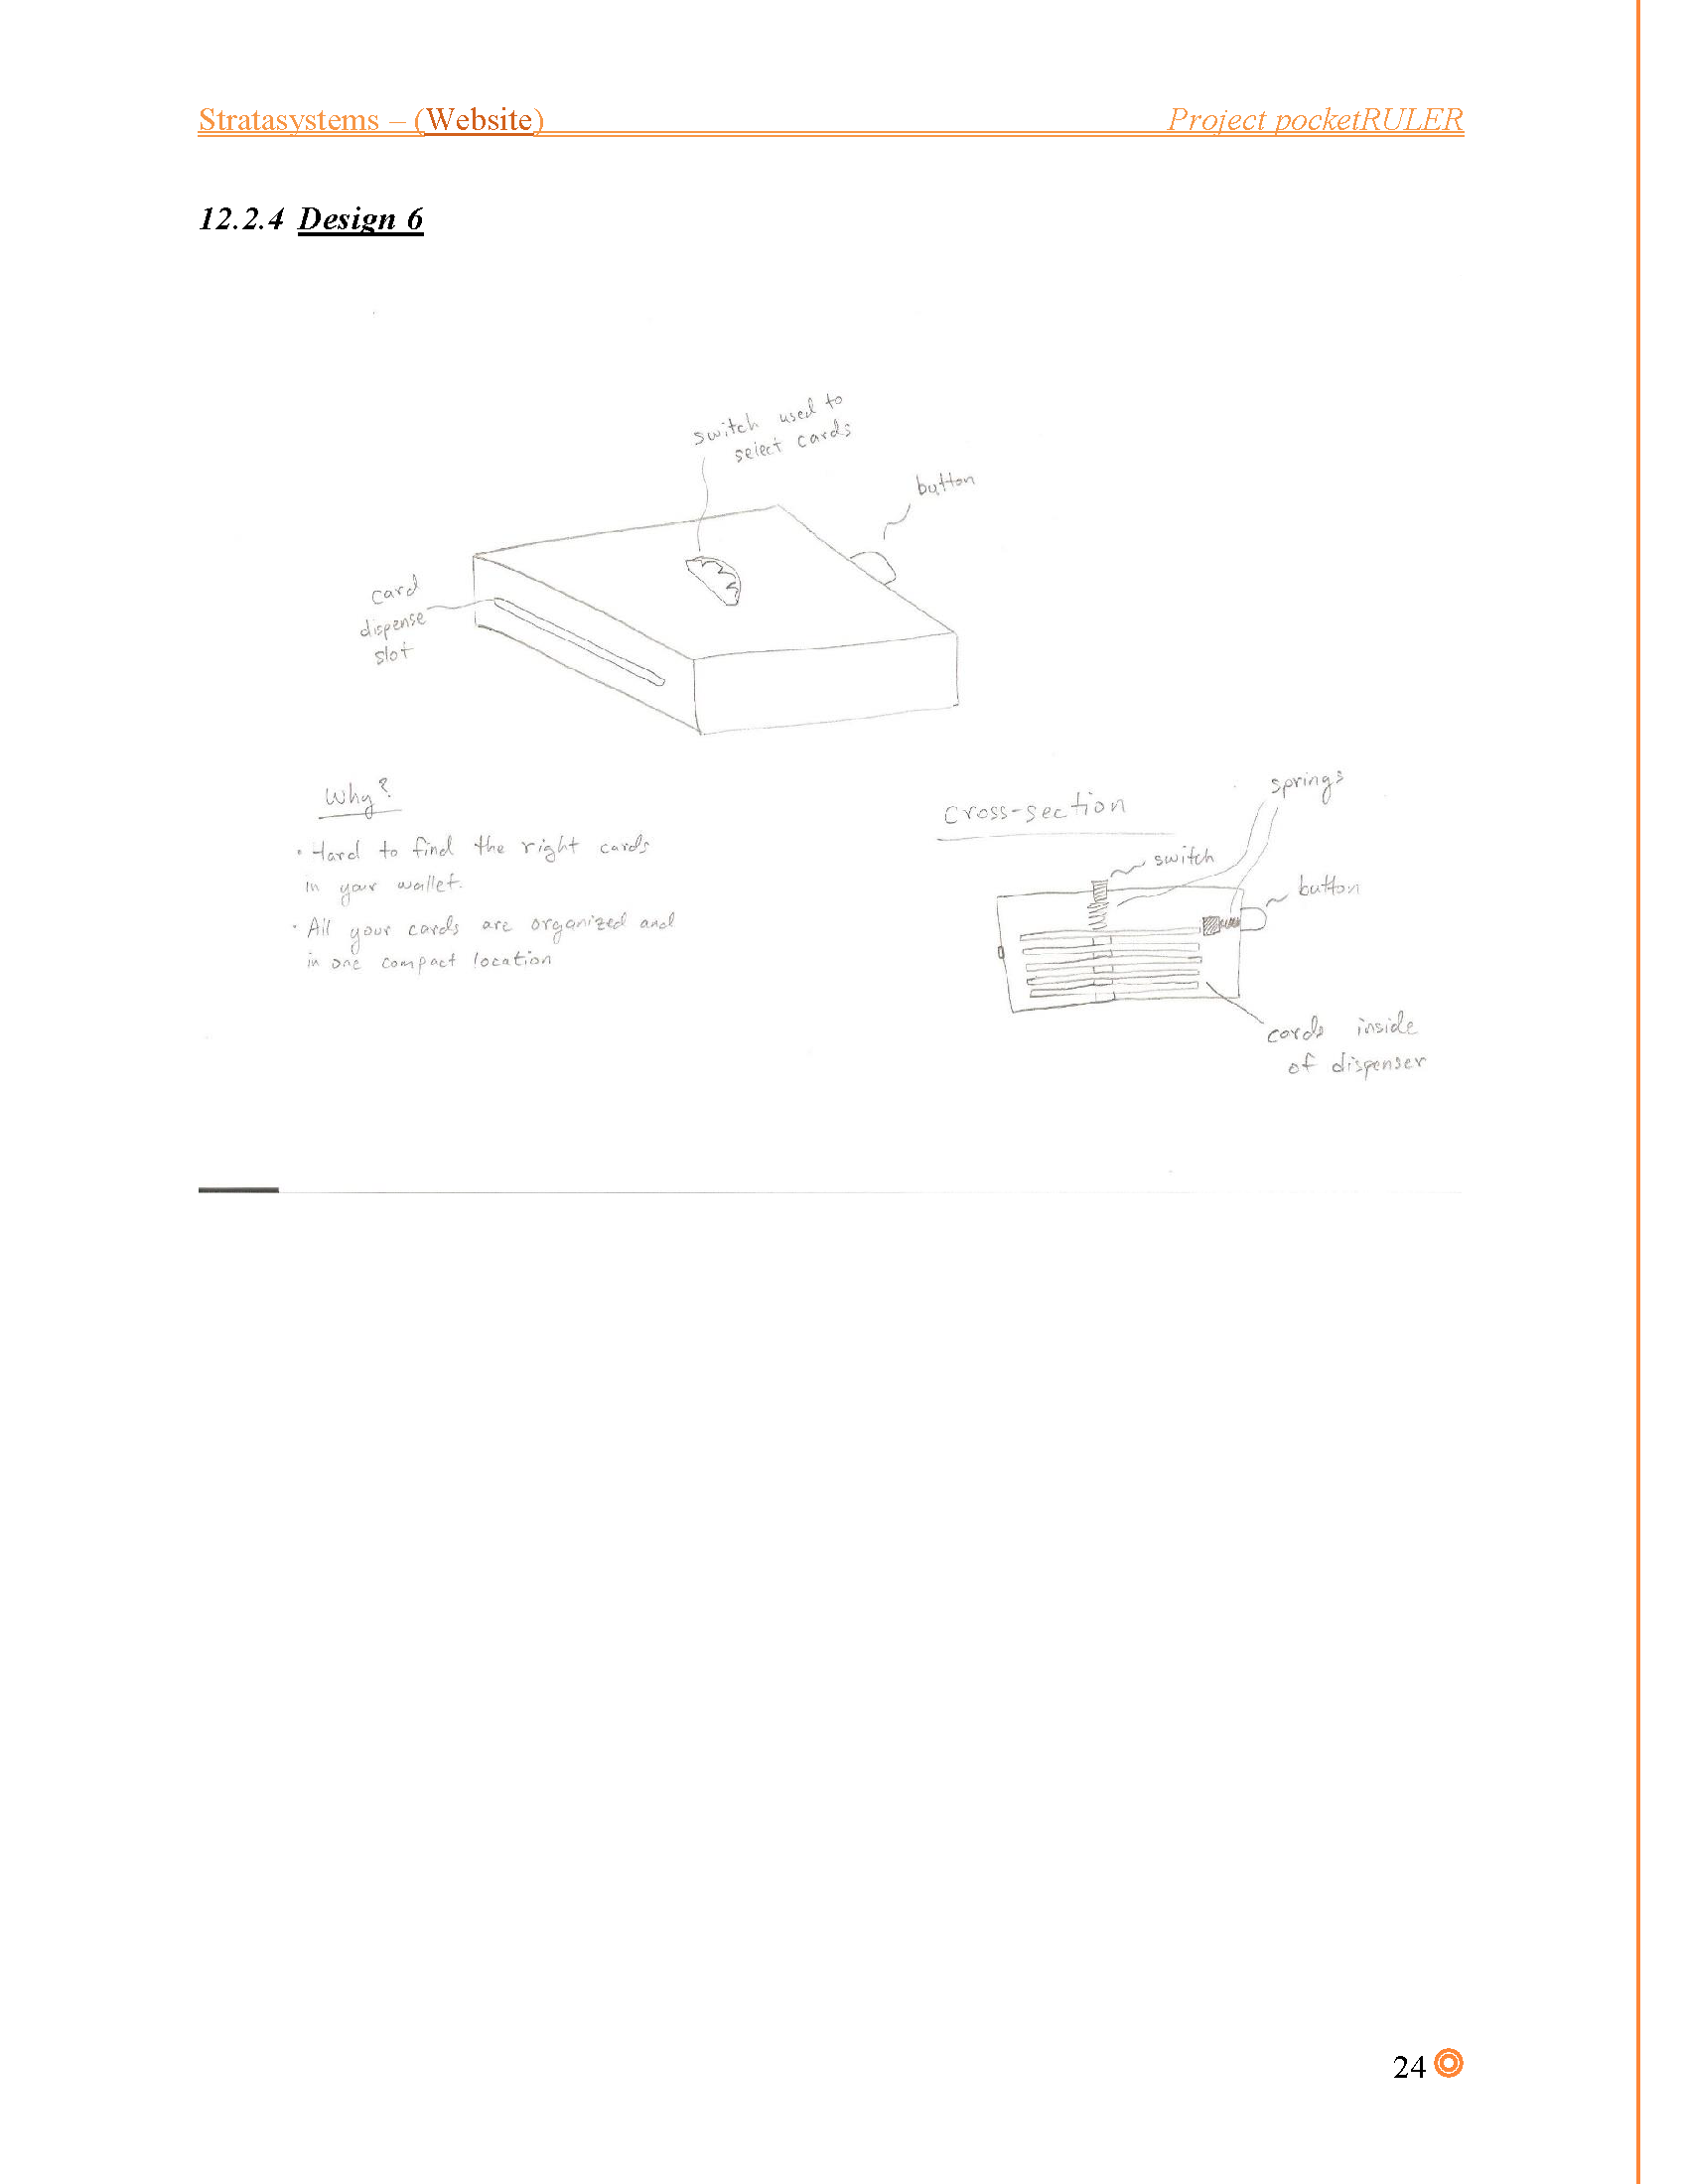 Stratasystems – (Website) Project pocketRULER
12.2.4 Design 6
switch used to
select cards
button
card
dispense
slot
Why?
• Hard to find the right cards
in your wallet.
• All your cards are organized and
in one compact location
cross-section
springs
switch
button
cards inside
of dispenser
24